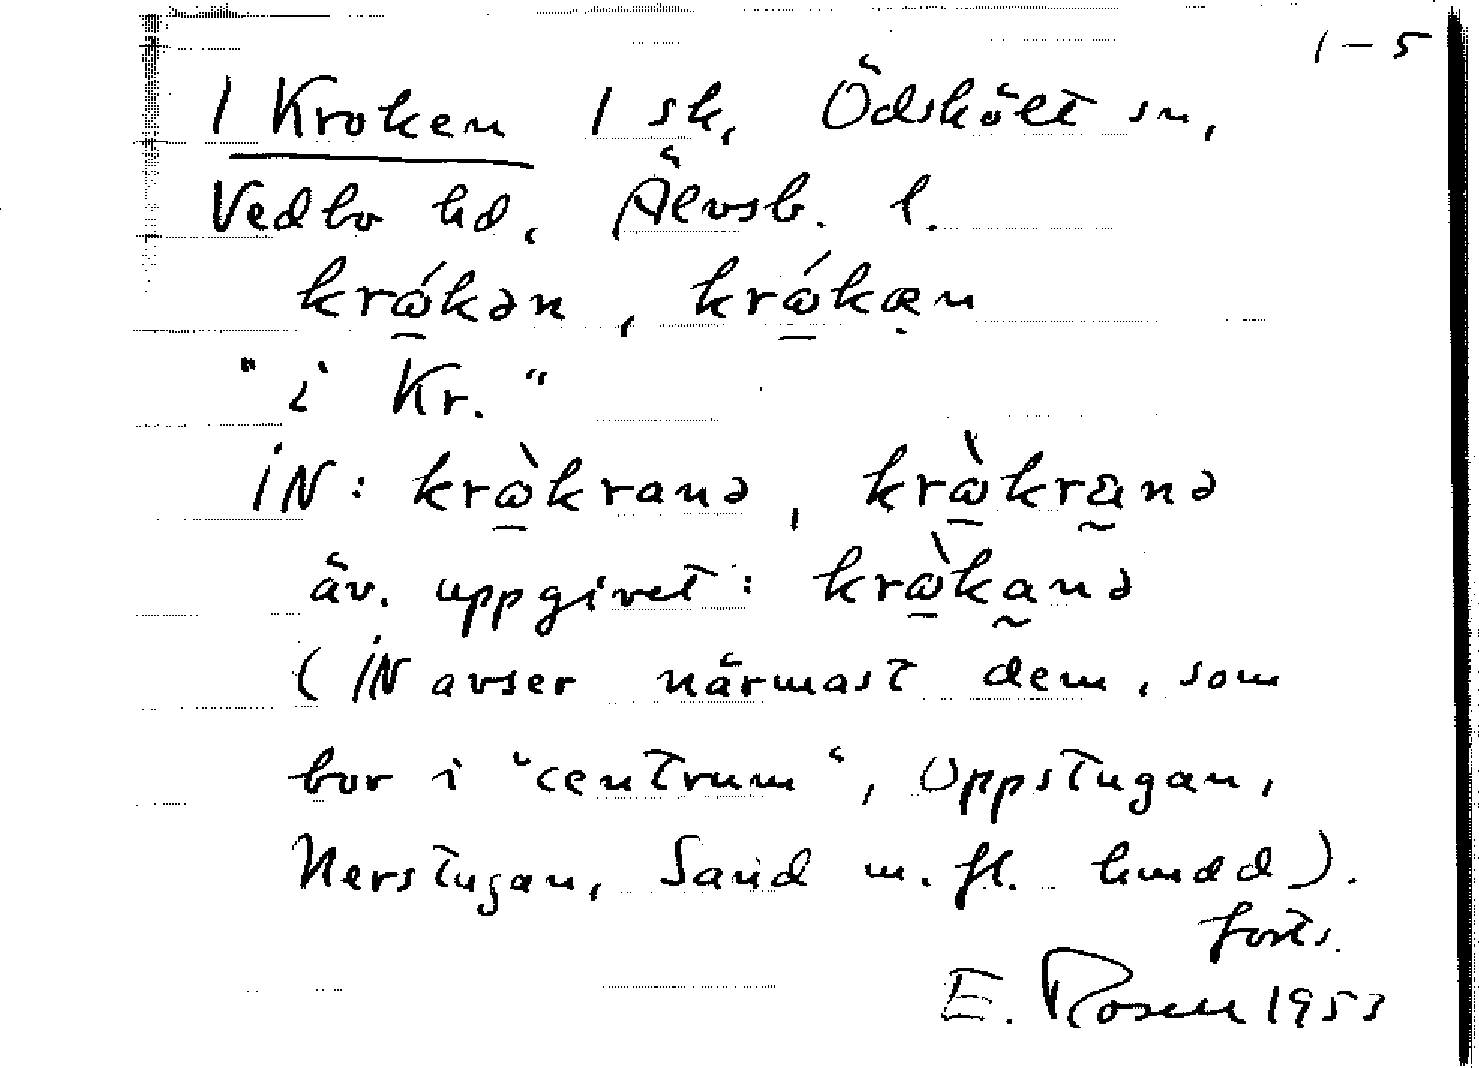 1-5
1 Kroken 1 sk, Ödskölt sn,
Vedbo hd, Älvsb. l.
krώ̱kən, krώ̱kæ̣n
"i Kr."
IN: krὼ̱kranə, krὼ̱kra̰nə
äv. uppgivet: krὼ̱ka̰nə
(IN avser närmast dem, som
bor i "centrum", Uppstugan,
Nerstugan, Sand m. fl. hmdd).
forts.
E. Rosen 1953